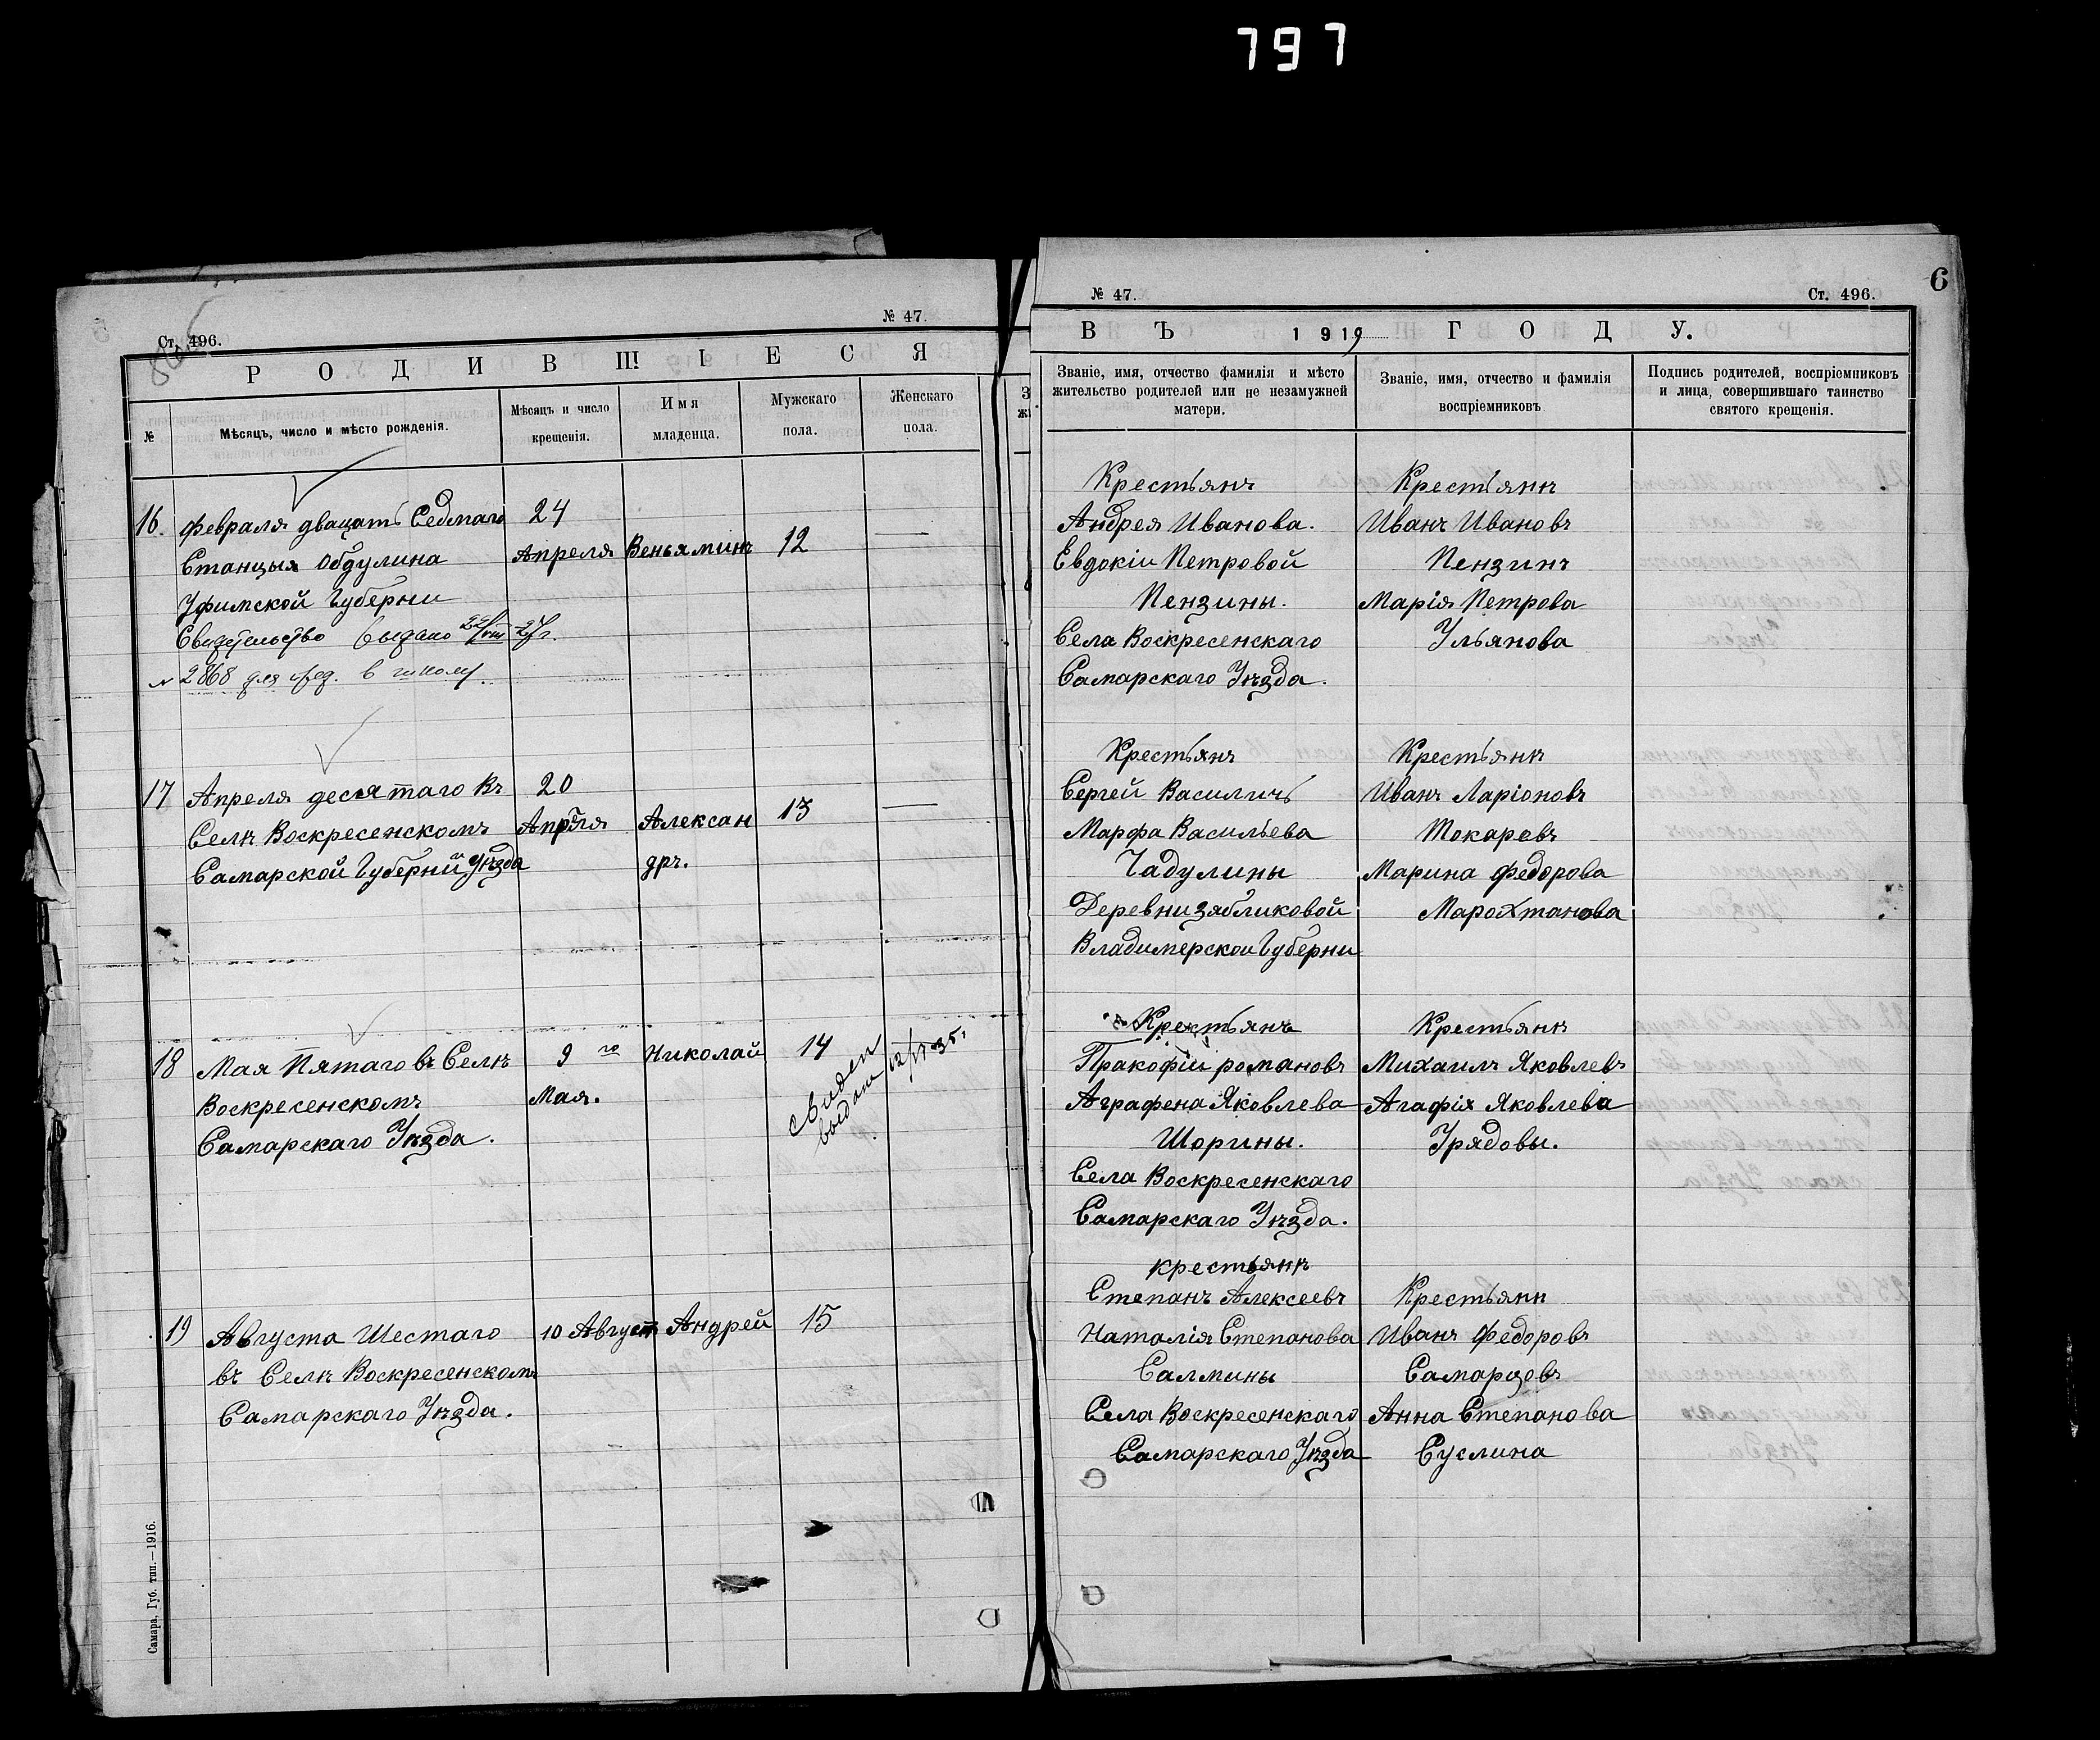 797
Ст. 496.
№ 47.
РОДИВШІЕСЯ
№
Мѣсяцъ, число и мѣсто рожденія.
Мѣсяцъ и число крещенія.
Имя младенца.
Мужскаго пола.
Женскаго пола.
16. Февраля двацать Седмаго 24
Станцыя Обдулина Апреля Веньяминъ 12 —
Уфимской Губерни
Свидетельство выдано 22/VIII 27 г.
№ 2868 для пред. в школу.
17 Апреля десятаго Въ 20
Селѣ Воскресенскомъ Апреля Алексан 13 —
Самарской Губерний Уѣзда дръ.
18 Мая Пятаго въ Селѣ 9 го Николай 14
Воскресенскомъ Мая.
Самарскаго Уѣзда.
Свиден
выдан 12/VI 35.
19 Августа Шестаго 10 Август Андрей 15
въ Селѣ Воскресенскомъ
Самарскаго Уѣзда.
Самара, Губ. тип.—1916.
6
№ 47.
Ст. 496.
ВЪ 1919 ГОДУ.
Званіе, имя, отчество фамилія и мѣсто
жительство родителей или не незамужней
матери.
Званіе, имя, отчество и фамилія
воспріемниковъ
Подпись родителей, воспріемниковъ
и лица, совершившаго таинство
святого крещенія.
Крестьянъ Крестьянѣ
Андрея Иванова. Иванъ Ивановъ
Евдокіи Петровой Пензинъ
Пензины. Марія Петрова
Села Воскресенскаго Ульянова
Самарскаго Уѣзда.
Крестьянъ Крестьянѣ
Сергей Василичь Иванъ Ларіоновъ
Марфа Васильева Токаревъ
Чадулины Марина Федорова
Деревни зябликовой Марохтанова
Владимерской Губерни
Крестьянъ Крестьянѣ
Пракофіи романовъ Михаилъ Яковлевъ
Аграфена Яковлева Агафія Яковлева
Шорины. Урядовы.
Села Воскресенскаго
Самарскаго Уѣзда.
крестьянѣ
Степанъ Алексеевъ Крестьянѣ
Наталія Степанова Иванъ Федоровъ
Салмины Самарцовъ
Села Воскресенскаго Анна Степанова
Самарскаго Уѣзда Суслина